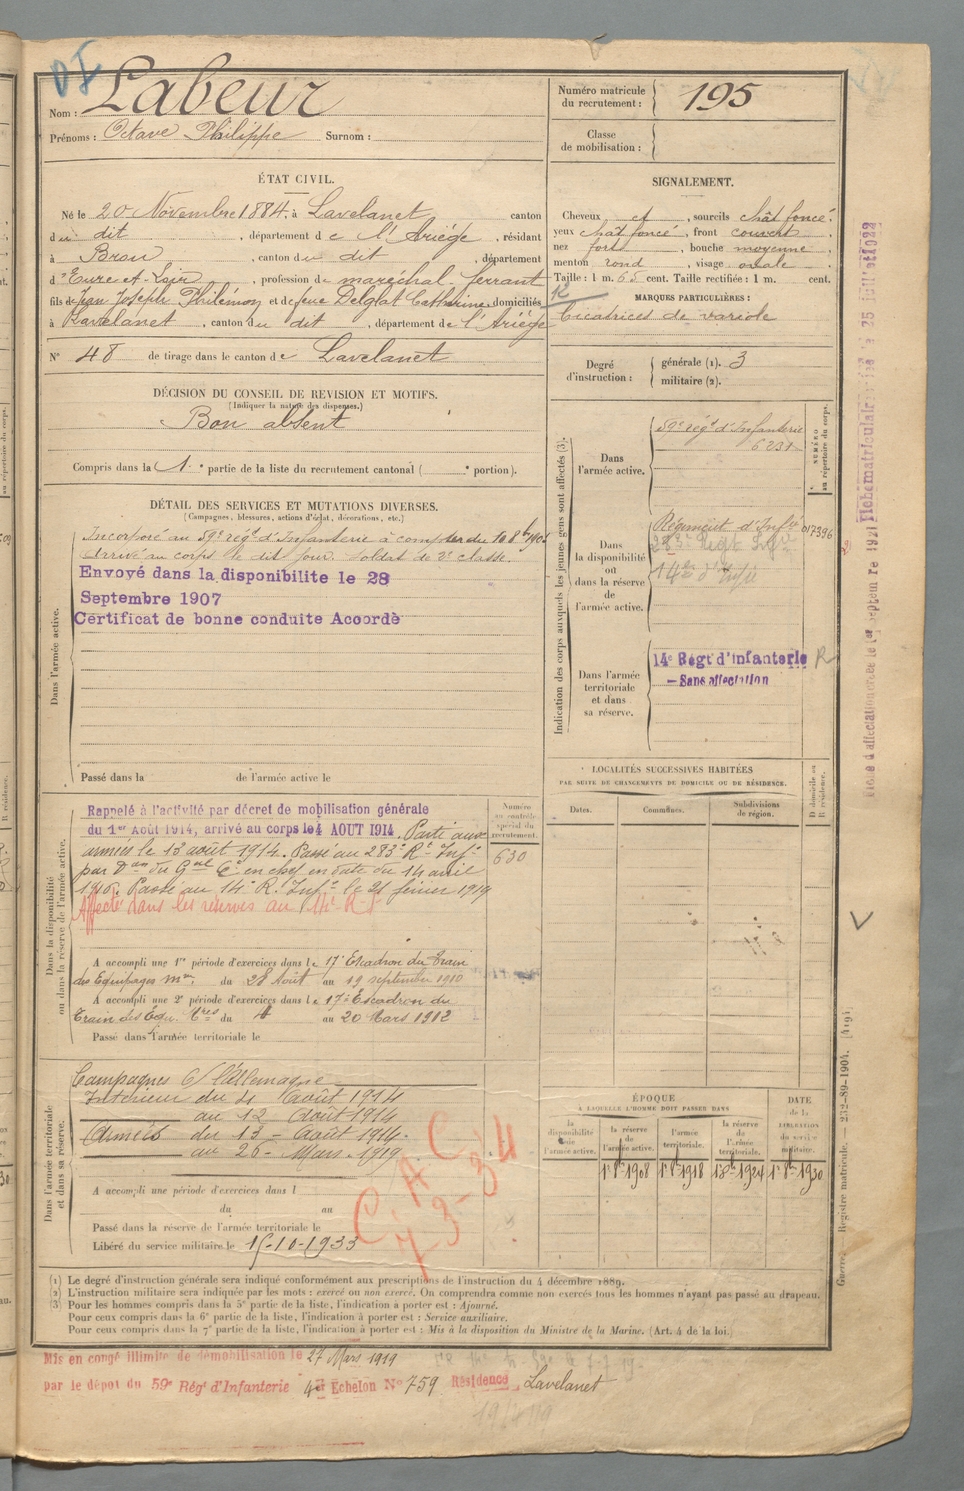 Nom : Labeur
Prénoms : Octave Philippe Surnom :
Numéro matricule du recrutement : 195
Classe de mobilisation :
ÉTAT CIVIL.
Né le 20 Novembre 1884, à Lavelanet, canton
du dit, département de l'Ariège, résidant
à Brou, canton du dit, département
d'Eure et Loir, profession de maréchal-ferrant
fils de Jean Joseph Philémon et de feue Delglat Catherine, domiciliés
à Lavelanet, canton du dit, département de l'Ariège
N° 48 de tirage dans le canton de Lavelanet
DÉCISION DU CONSEIL DE REVISION ET MOTIFS.
(Indiquer la nature des dispenses.)
Bon absent
Compris dans la 1e partie de la liste du recrutement cantonal ( e portion).
SIGNALEMENT.
Cheveux et, sourcils chât foncé.
yeux chât foncé, front couvert
nez fort, bouche moyenne
menton rond, visage ovale
Taille : 1 m. 65 cent. Taille rectifiée : 1 m. cent.
12
MARQUES PARTICULIÈRES :
Cicatrices de variole
Degré d'instruction : générale (1). 3
militaire (2).
DÉTAIL DES SERVICES ET MUTATIONS DIVERSES.
(Campagnes, blessures, actions d'éclat, décorations, etc.)
Dans l'armée active.
Incorporé au 59e régt d'Infanterie à compter du 10 8bre 1905
Arrivé au corps le dit jour. Soldat de 2e classe.
Envoyé dans la disponibilite le 28
Septembre 1907
Certificat de bonne conduite Accordé
Passé dans la de l'armée active le
Indication des corps auxquels les jeunes gens sont affectés (3).
NUMÉRO au répertoire du corps.
Dans l'armée active.
59e régt d'Infanterie
6231
Dans la disponibilité ou dans la réserve de l'armée active.
Régiment d'Infie 017396
283e Régt Infie
14e d'Infie
Dans l'armée territoriale et dans sa réserve.
14e Régt d'Infanterie R
- Sans affectation
LOCALITÉS SUCCESSIVES HABITÉES
PAR SUITE DE CHANGEMENTS DE DOMICILE OU DE RÉSIDENCE.
Dates. Communes. Subdivisions de région. D domicile ou R résidence.
Dans la disponibilité ou dans la réserve de l'armée active.
Numéro au contrôle spécial du recrutement.
630
Rappelé à l'activité par décret de mobilisation générale
du 1er Août 1914, arrivé au corps le 4 AOUT 1914. Parti aux
armées le 13 août 1914. Passé au 283e Rt Infie
par Don du Gal Ct en chef en date du 14 avril
1916. Passé au 14e R. Infie le 21 février 1919
Affecté dans les réserves au 14e R.I
A accompli une 1re période d'exercices dans le 17e Escadron du Train
des Equipages mres du 28 Août au 19 septembre 1910
A accompli une 2e période d'exercices dans le 17e Escadron du
Train des Equ. Mres du 4 au 20 Mars 1912
Passé dans l'armée territoriale le
Dans l'armée territoriale et dans sa réserve.
Campagnes c/ l'Allemagne
Intérieur du 4 Août 1914
au 12 Août 1914
Armées du 13 Août 1914.
au 26 Mars 1919
C.A.C.
7-3-34
A accompli une période d'exercices dans l
du au
Passé dans la réserve de l'armée territoriale le
Libéré du service militaire le 15-10-1933
ÉPOQUE
À LAQUELLE L'HOMME DOIT PASSER DANS
la disponibilité de l'armée active. la réserve de l'armée active. l'armée territoriale. la réserve de l'armée territoriale.
DATE de la LIBÉRATION du service militaire.
1er 8bre 1908 1er 8bre 1918 1er 8bre 1924 1er 8bre 1930
(1) Le degré d'instruction générale sera indiqué conformément aux prescriptions de l'instruction du 4 décembre 1889.
(2) L'instruction militaire sera indiquée par les mots : exercé ou non exercé. On comprendra comme non exercés tous les hommes n'ayant pas passé au drapeau.
(3) Pour les hommes compris dans la 5e partie de la liste, l'indication à porter est : Ajourné.
Pour ceux compris dans la 6e partie de la liste, l'indication à porter est : Service auxiliaire.
Pour ceux compris dans la 7e partie de la liste, l'indication à porter est : Mis à la disposition du Ministre de la Marine. (Art. 4 de la loi.)
Mis en congé illimité de démobilisation le 27 Mars 1919
par le dépôt du 59e Régt d'Infanterie 4e Echelon N° 759 Résidence Lavelanet
Guerre. Registre matricule. — 232-89-1904. [419]